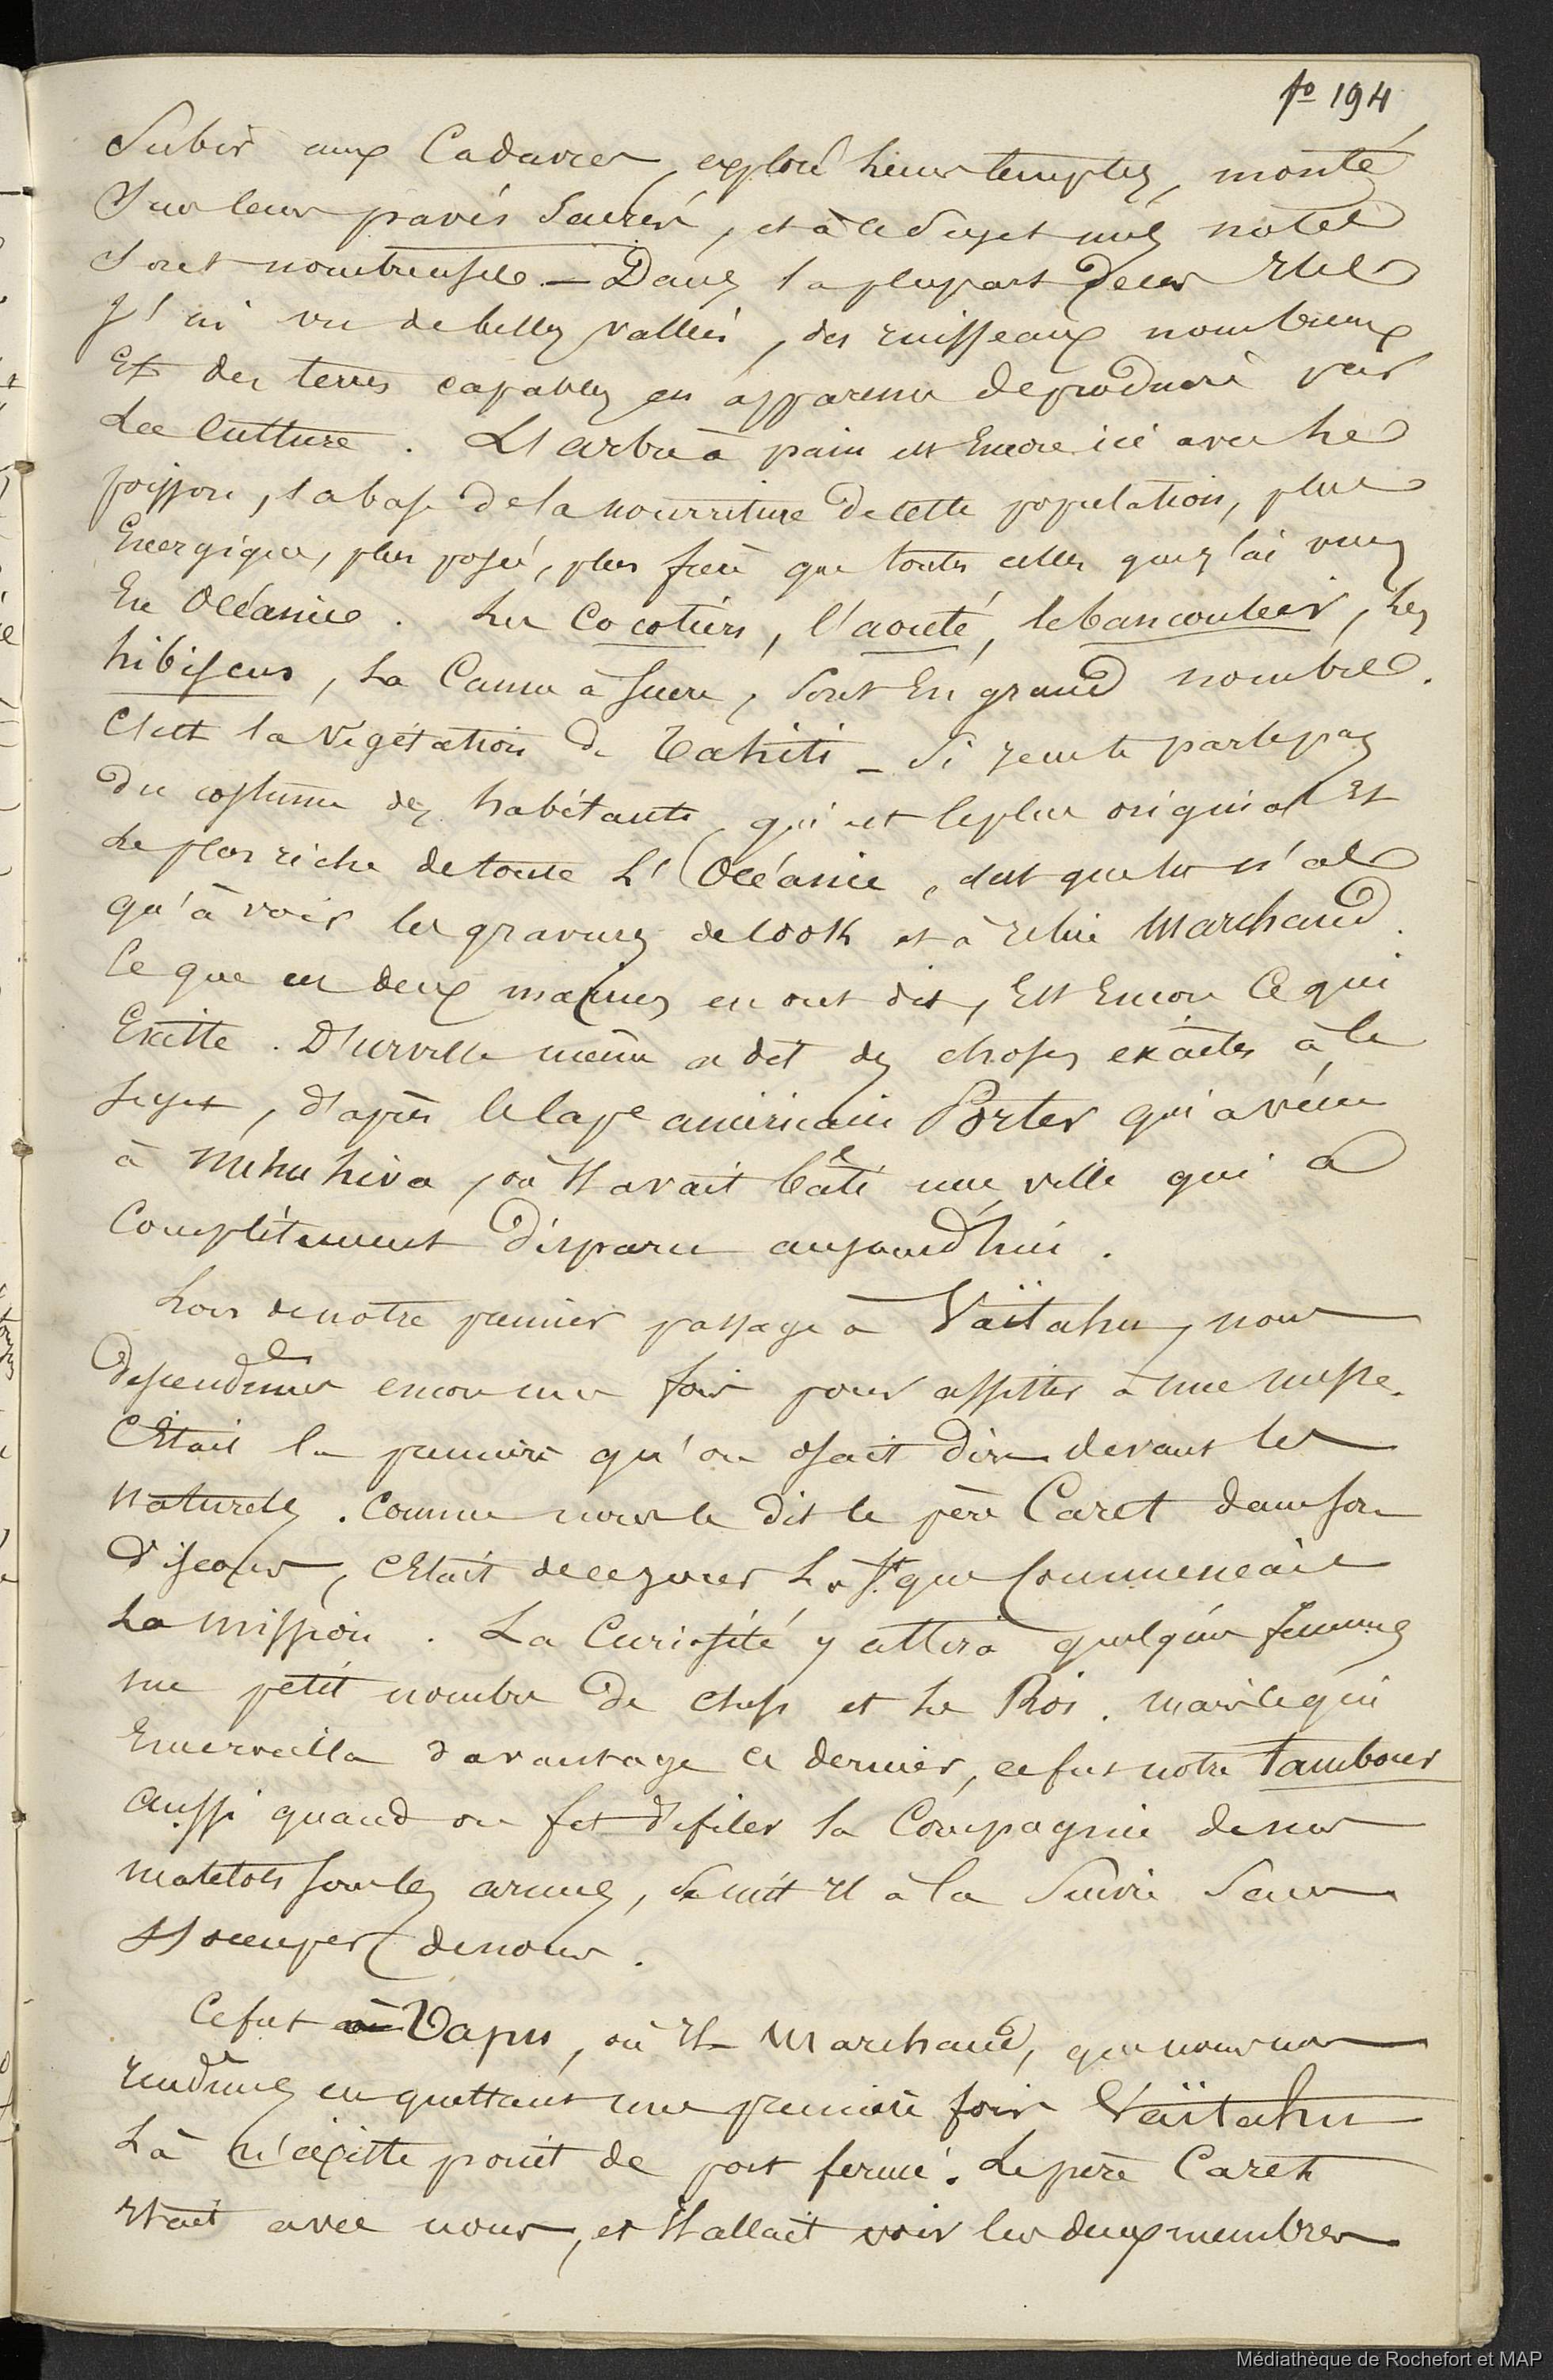 fo 194
Subir aux Cadavres, exploré leurs temples, monté
Sur leurs pavés Sacrés, et à ce Sujet mes notes
Sont nombreuses. — Dans la plupart de ces Iles
J'ai vu de belles vallées, des ruisseaux nombreux
Et des terres capables en apparence de produire par
La Culture. L'arbre à pain est Encore ici avec le
poisson, la base de la nourriture de cette population, plus
Energique, plus posée, plus fière que toutes celles que j'ai vues
En Océanie. Les Cocotiers, l'aouté, le bancoulier, les
hibiscus, La Canne à Sucre, Sont En grand nombre.
C'est la Végétation de Tahiti — Si je ne te parle pas
Du costume des habitants, qui est le plus original Et
Le plus riche de toute L'Océanie, c'est que tu n'as
qu'à voir les gravures de Cook et à relire Marchand.
Ce que ces deux marins en ont dit, Est Encore Ce qui
Existe. D'urville même a dit des choses exactes à ce
Sujet, d'après le Cape américain Porter qui a vécu
à Nuhu hiva, où Il avait bâti une ville qui a
Complètement Disparu aujourd'hui.
Lors de notre premier passage à Vaïtahu, nous
Descendimes encore une fois pour assister à une messe.
C'Etait la première qu'on osait Dire devant les
Naturels. Comme nous le dit le père Caret dans son
Discours, C'Etait de ce jour Là que Commencait
La Mission. La Curiosité y attira quelques femmes
un petit nombre de chefs et Le Roi. Mais ce qui
Emerveilla davantage ce dernier, ce fut notre tambour
Aussi quand on fit défiler la Compagnie de nos
Matelots sous les armes, Se mit Il à la Suivre Sans
S'occuper de nous.
Ce fut à Vapu, où Ile Marchand, que nous nous
rendîmes en quittant une première fois Vaïtahu
Là n'existe point de port fermé. Le père Caret
Etait avec nous, et Il allait voir les deux membres
Médiathèque de Rochefort et MAP